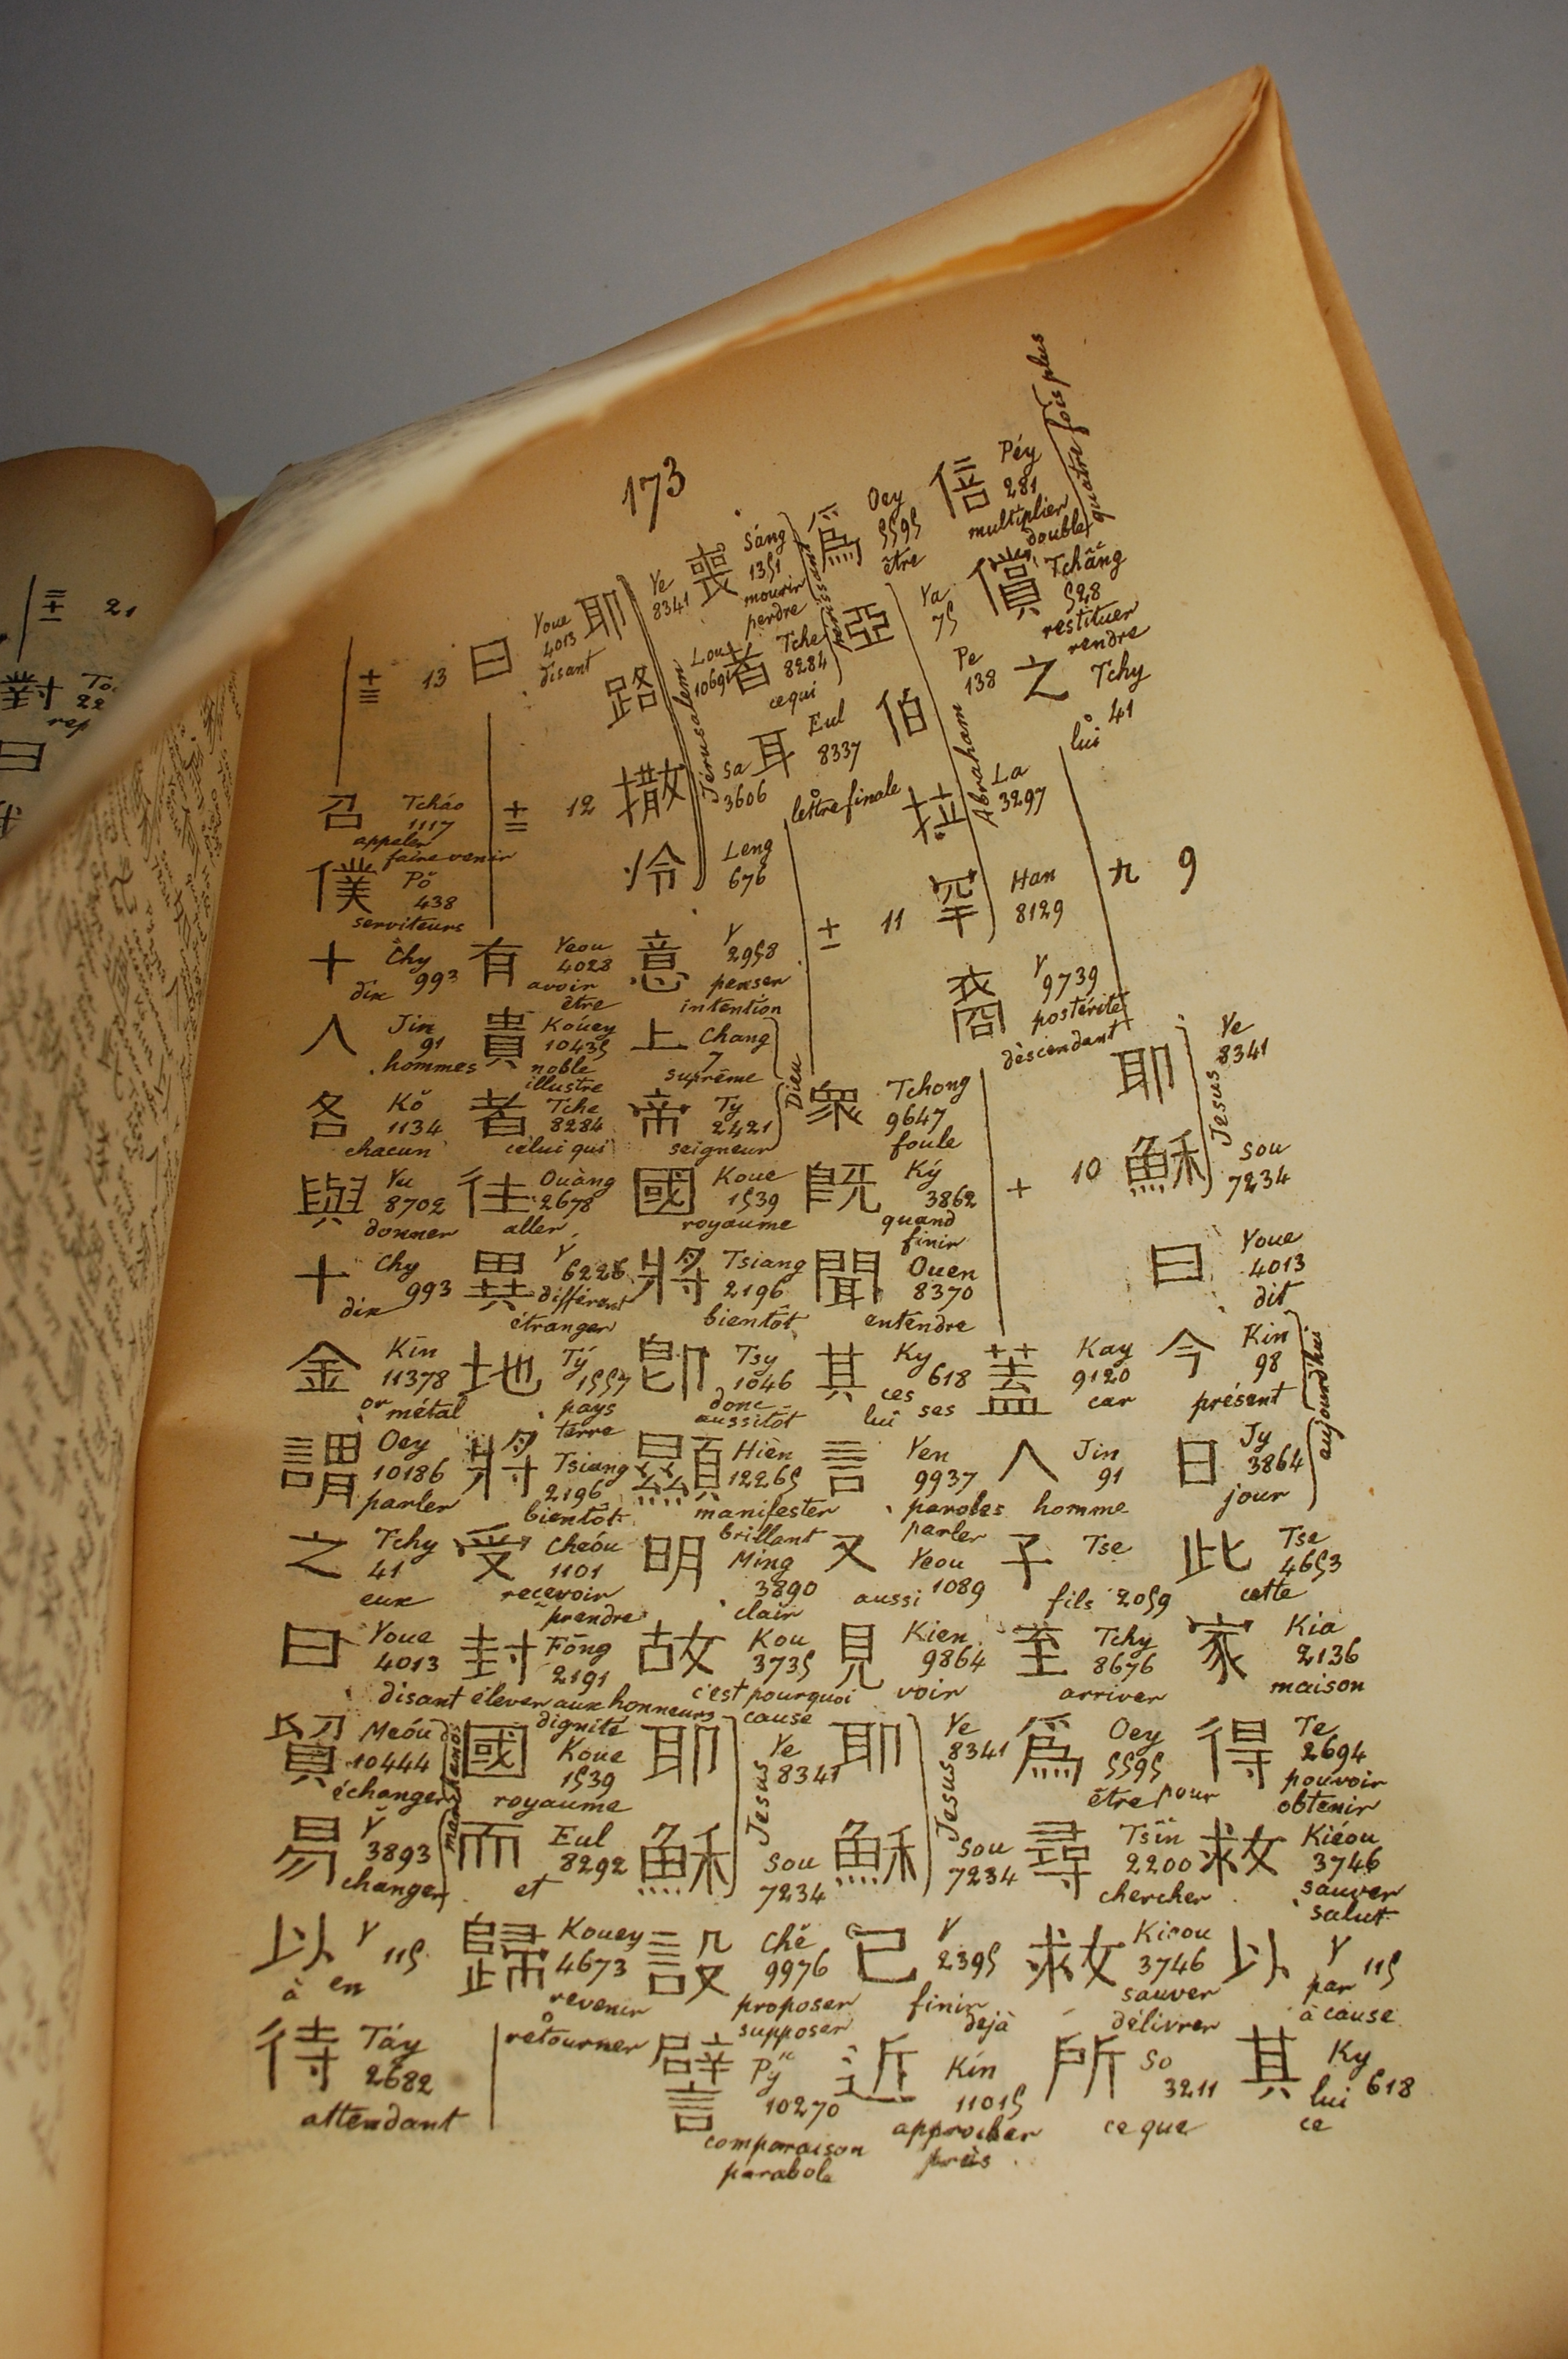 173
倍 Péy 281 multiplier double
償 Tchăng 528 restituer rendre
quatre fois plus
之 Tchy 41 lui
九 9
耶 Ye 8341
穌 Sou 7234
Jesus
曰 Youe 4013 dit
今 Kin 98 présent
日 Jy 3864 jour
aujourd'hui
此 Tse 4653 cette
家 Kia 2136 maison
得 Te 2694 pouvoir obtenir
救 Kiéou 3746 sauver salut
以 Y 115 par à cause
其 Ky 618 lui ce
爲 Oey 5595 être
亞 Ya 75
伯 Pe 138
拉 La 3297
罕 Han 8129
Abraham
裔 Y 9739 postérité descendant
十 10
蓋 Kay 9120 car
人 Jin 91 homme
子 Tse 2059 fils
至 Tchy 8676 arriver
爲 Oey 5595 être pour
尋 Tsin 2200 chercher
救 Kieou 3746 sauver délivrer
所 So 3211 ce que
喪 Sáng 1351 mourir perdre
者 Tche 8284 ce qui
耳 Eul 8337 lettre finale
十一 11
衆 Tchong 9647 foule
既 Ký 3862 quand finir
聞 Ouen 8370 entendre
其 Ky 618 ces lui ses
言 Yen 9937 paroles parler
又 Yeou 1089 aussi
見 Kien 9864 voir
耶 Ye 8341
穌 Sou 7234
Jesus
已 Y 2395 finir déjà
近 Kín 11015 approcher près
耶 Ye 8341
路 Lou 10691
撒 Sa 3606
冷 Leng 676
Jérusalem
意 Y 2958 penser intention
上 Chang 7 suprême
帝 Ty 2421 seigneur
Dieu
國 Koue 1539 royaume
將 Tsiang 2196 bientôt
卽 Tsy 1046 donc aussitôt
顯 Hièn 12265 manifester brillant
明 Ming 3890 clair
故 Kou 3735 c'est pourquoi cause
耶 Ye 8341
穌 Sou 7234
Jesus
設 Chĕ 9976 proposer supposer
譬 Pý 10270 comparaison parabole
曰 Youe 4013 disant
十二 12
有 Yeou 4028 avoir être
貴 Kouey 10435 noble illustre
者 Tche 8284 celui qui
往 Ouàng 2678 aller
異 Y 6226 différent étranger
地 Tý 1557 pays terre
將 Tsiang 2196 bientôt
受 Cheóu 1101 recevoir prendre
封 Fōng 2191 élever aux honneurs dignité
國 Koue 1539 royaume
而 Eul 8292 et
歸 Kouey 4673 revenir retourner
十三 13
召 Tcháo 1117 appeler faire venir
僕 Pŏ 438 serviteurs
十 Chy 993 dix
人 Jin 91 hommes
各 Kŏ 1134 chacun
與 Yu 8702 donner
十 Chy 993 dix
金 Kin 11378 or métal
謂 Oey 10186 parler
之 Tchy 41 eux
曰 Youe 4013 disant
貿 Meóu 10444 échanger
易 Y 3893 changer
以 Y 115 à en
待 Táy 2682 attendant
21
對
曰